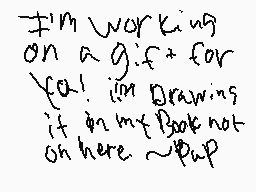 I'm working
on a gift for
Ya! i'm Drawing
it in my Book not
on here ~PuP